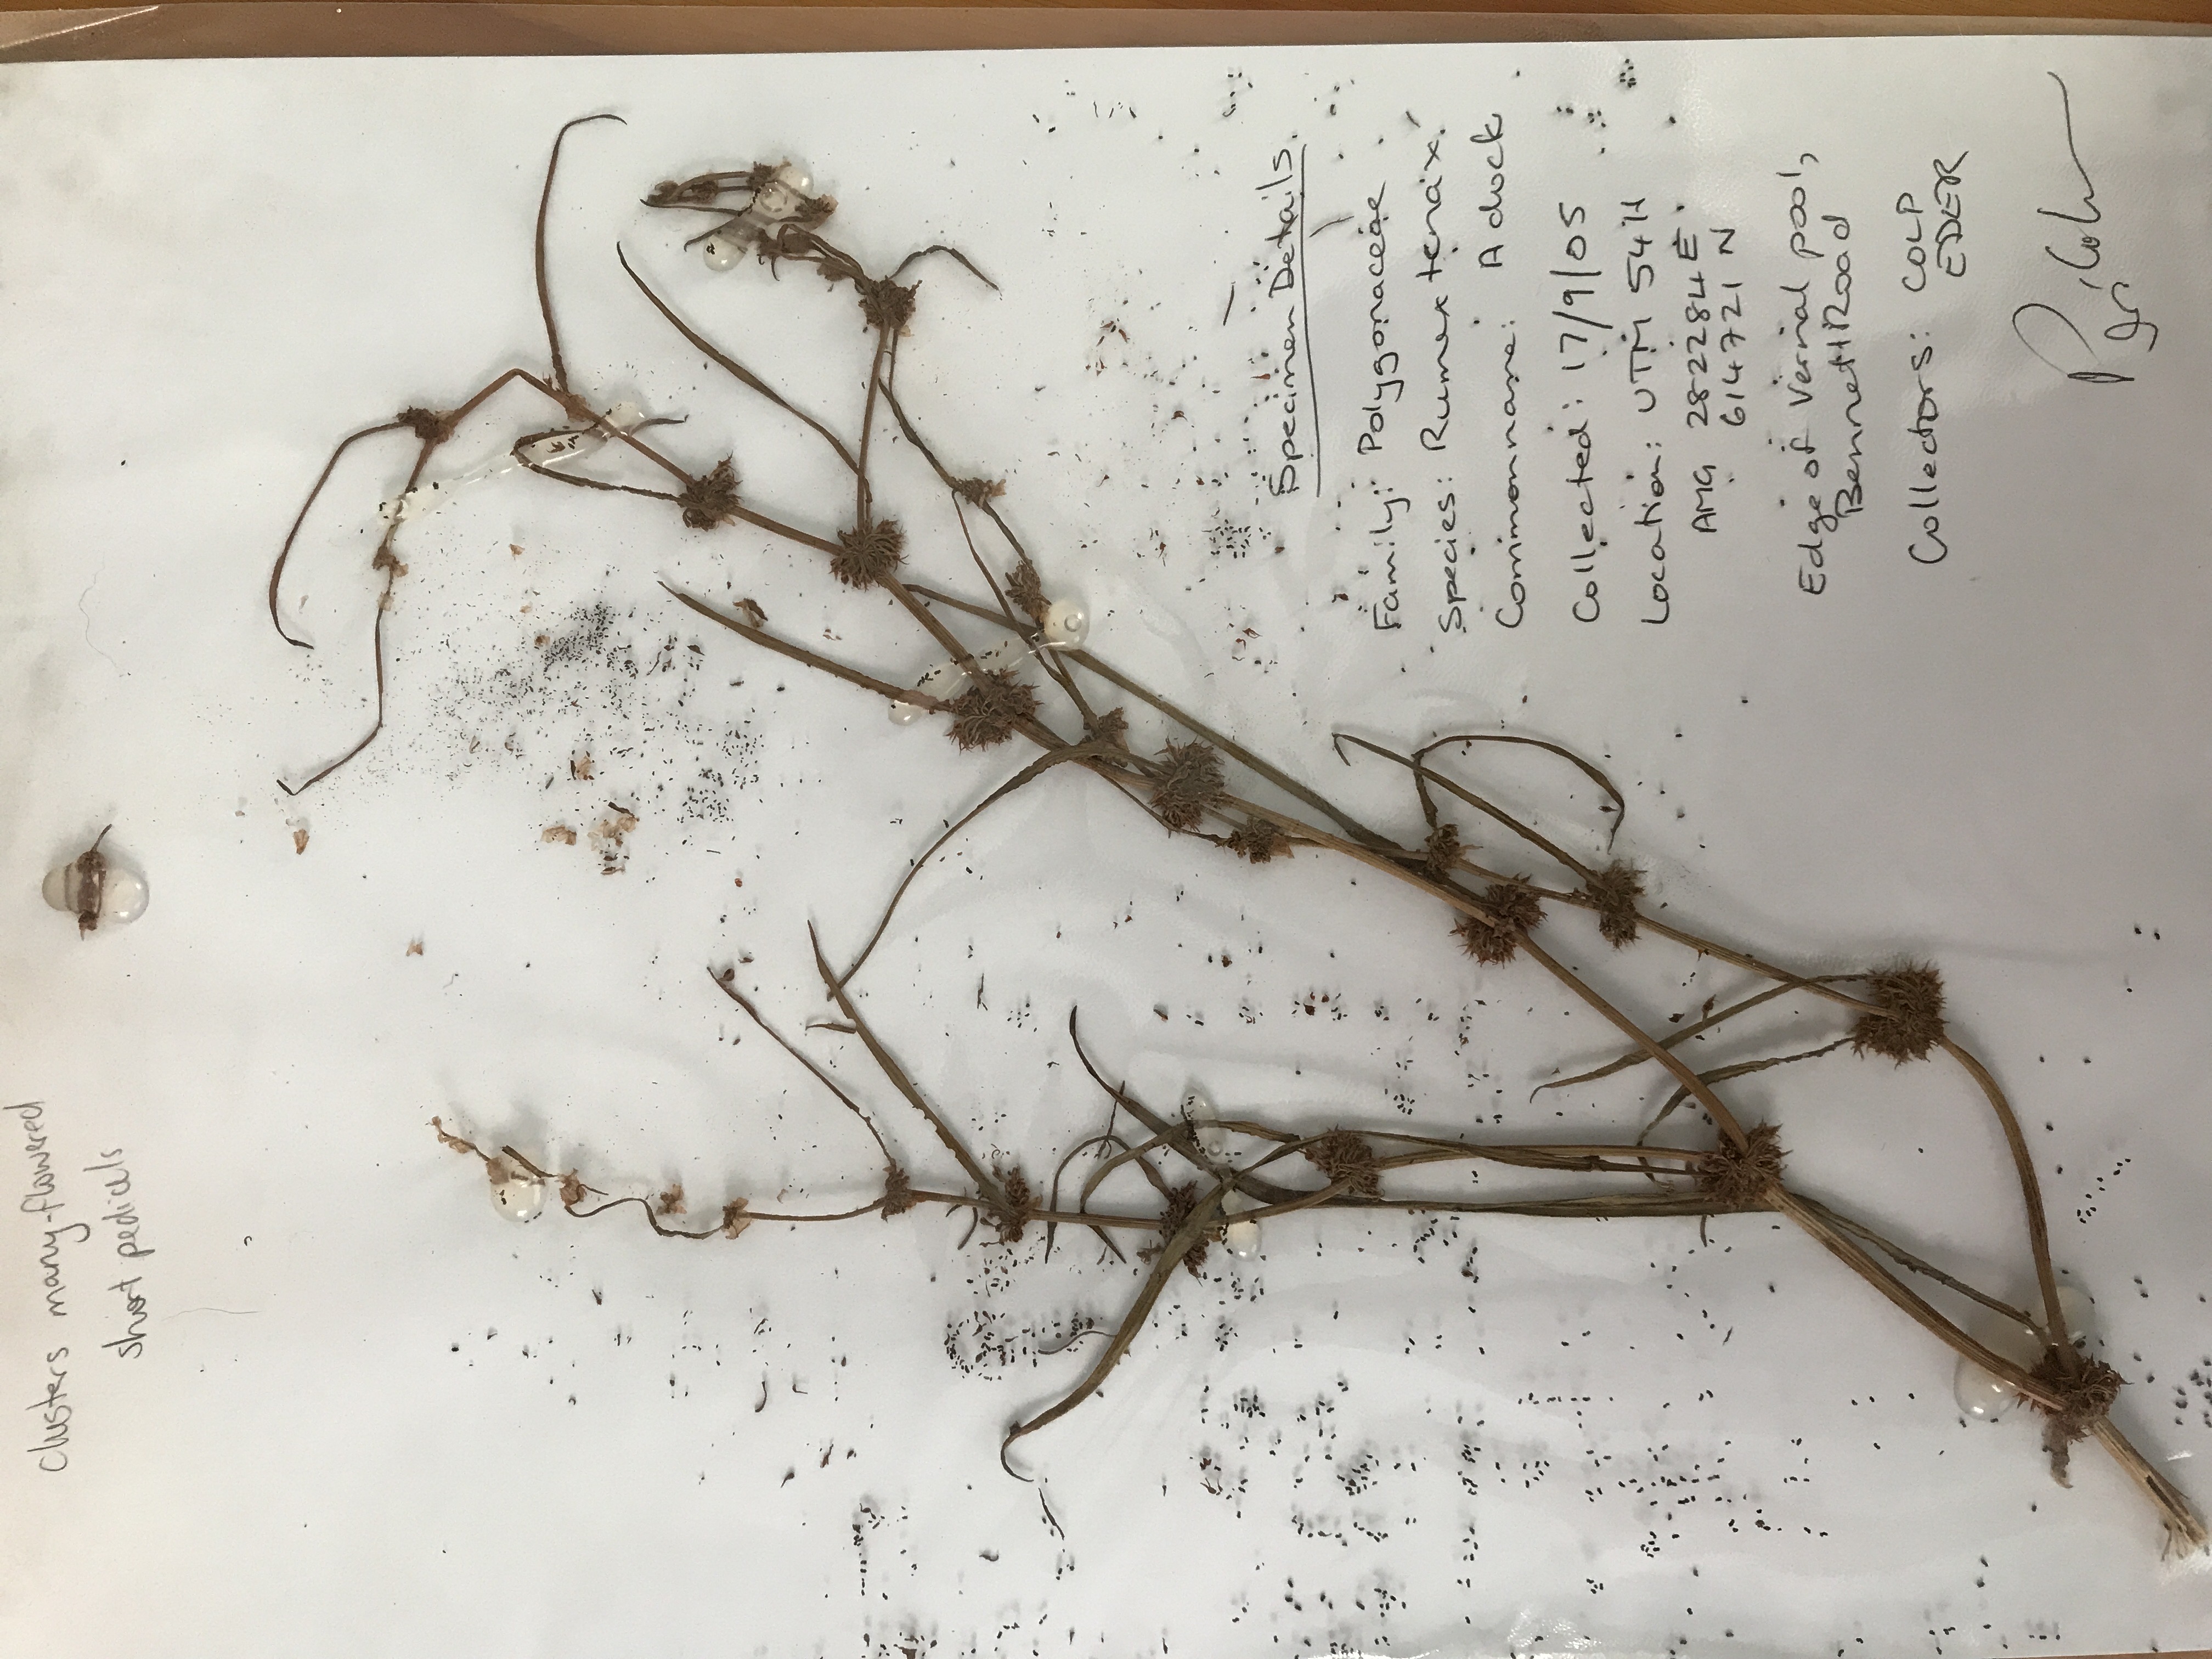 Clusters many-flowered
short pedicels
Specimen Details
Family: Polygonaceae
Species: Rumex tenax
Common name: A dock
Collected: 17/9/05
Location: UTM 54H
AMG 282284 E
614721 N
Edge of Vernal pool,
Bennett Road
Collectors: COLP
EDER